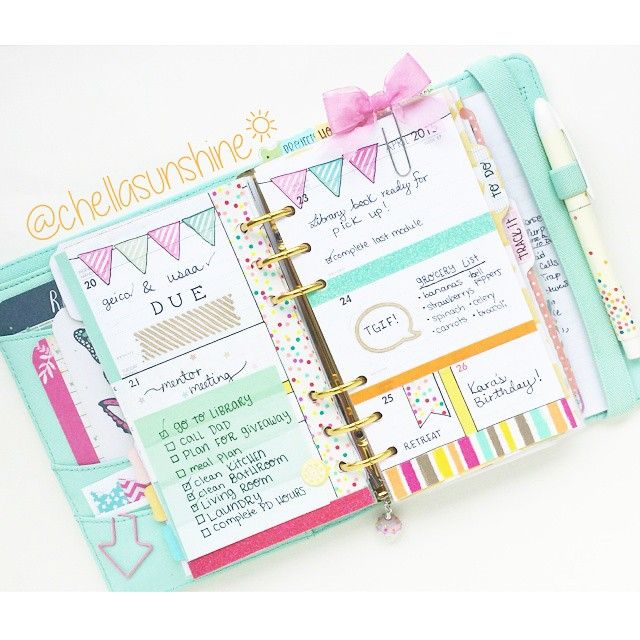 @chellasunshine
20
geico & usaa
DUE
21
mentor
meeting
GO TO LIBRARY
CALL DAD
PLAN FOR GIVEAWAY
meal plan
clean KITCHEN
clean BATHROOM
LIVING ROOM
LAUNDRY
complete PD HOURS
APRIL 201
23
library book ready for
PICK UP!
complete last module
24
TGIF!
GROCERY LIST
• bananas • bell
• strawberrys peppers
• spinach • celery
• carrots • brocoli
25
RETREAT
26
Kara's
Birthday!
TO DO
TRACK IT